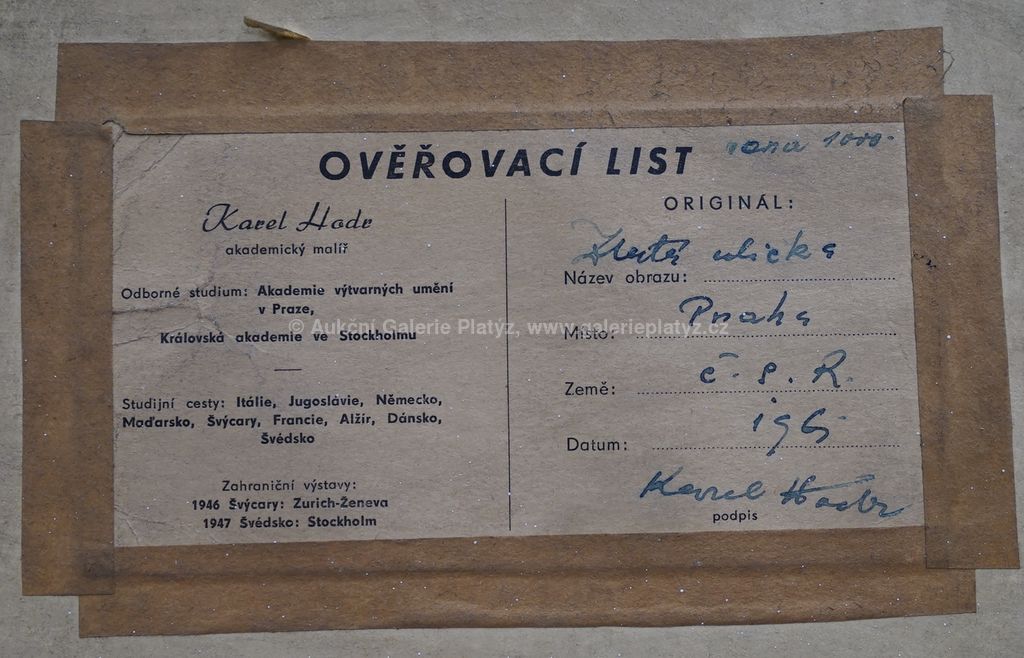 OVĚŘOVACÍ LIST
cena 1000-
Karel Hodr
akademický malíř
Odborné studium: Akademie výtvarných umění
v Praze,
Královská akademie ve Stockholmu
Studijní cesty: Itálie, Jugoslávie, Německo,
Maďarsko, Švýcary, Francie, Alžír, Dánsko,
Švédsko
Zahraniční výstavy:
1946 Švýcary: Zurich-Ženeva
1947 Švédsko: Stockholm
ORIGINÁL:
Název obrazu: Zlatá ulička
Místo: Praha
Země: č. s. R.
Datum:
Karel Hodr
podpis
© Aukční Galerie Platýz, www.galerieplatyz.cz